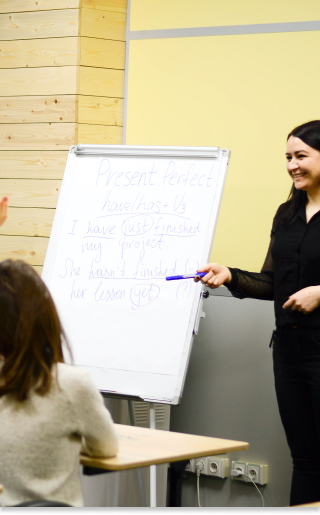 Present Perfect
have/has + V3
I have just finished
my project.
She hasn't finished
her lesson yet (-)